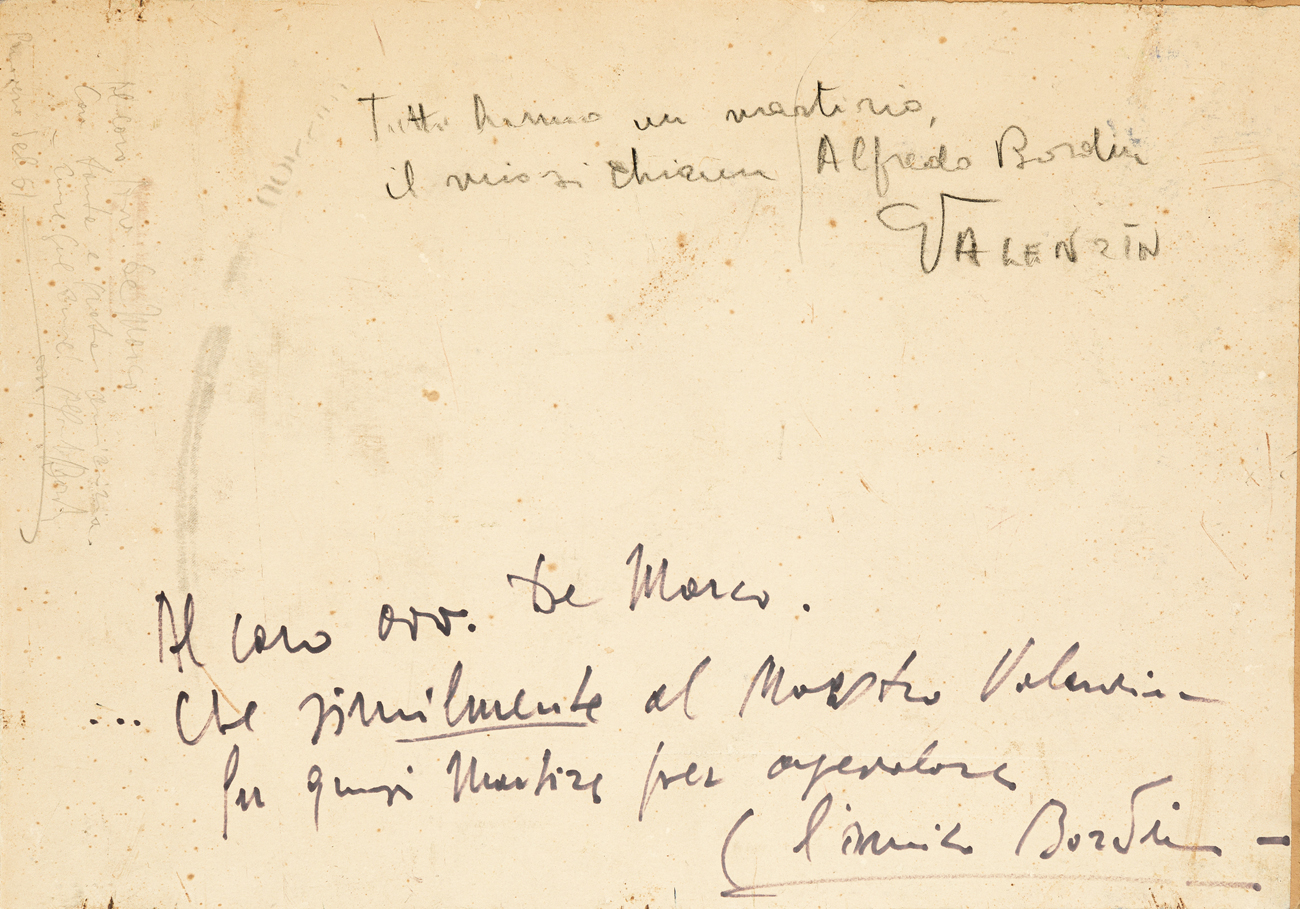 Tutti hanno un martirio,
il mio si chiama Alfredo Bordin
VALENZIN
Al caro avv. De Marco.
... che similmente al Maestro Valenzin
fu quasi Martire per agevolare
l'amico Bordin -
Al caro Avv. De Marco
Con tanta e